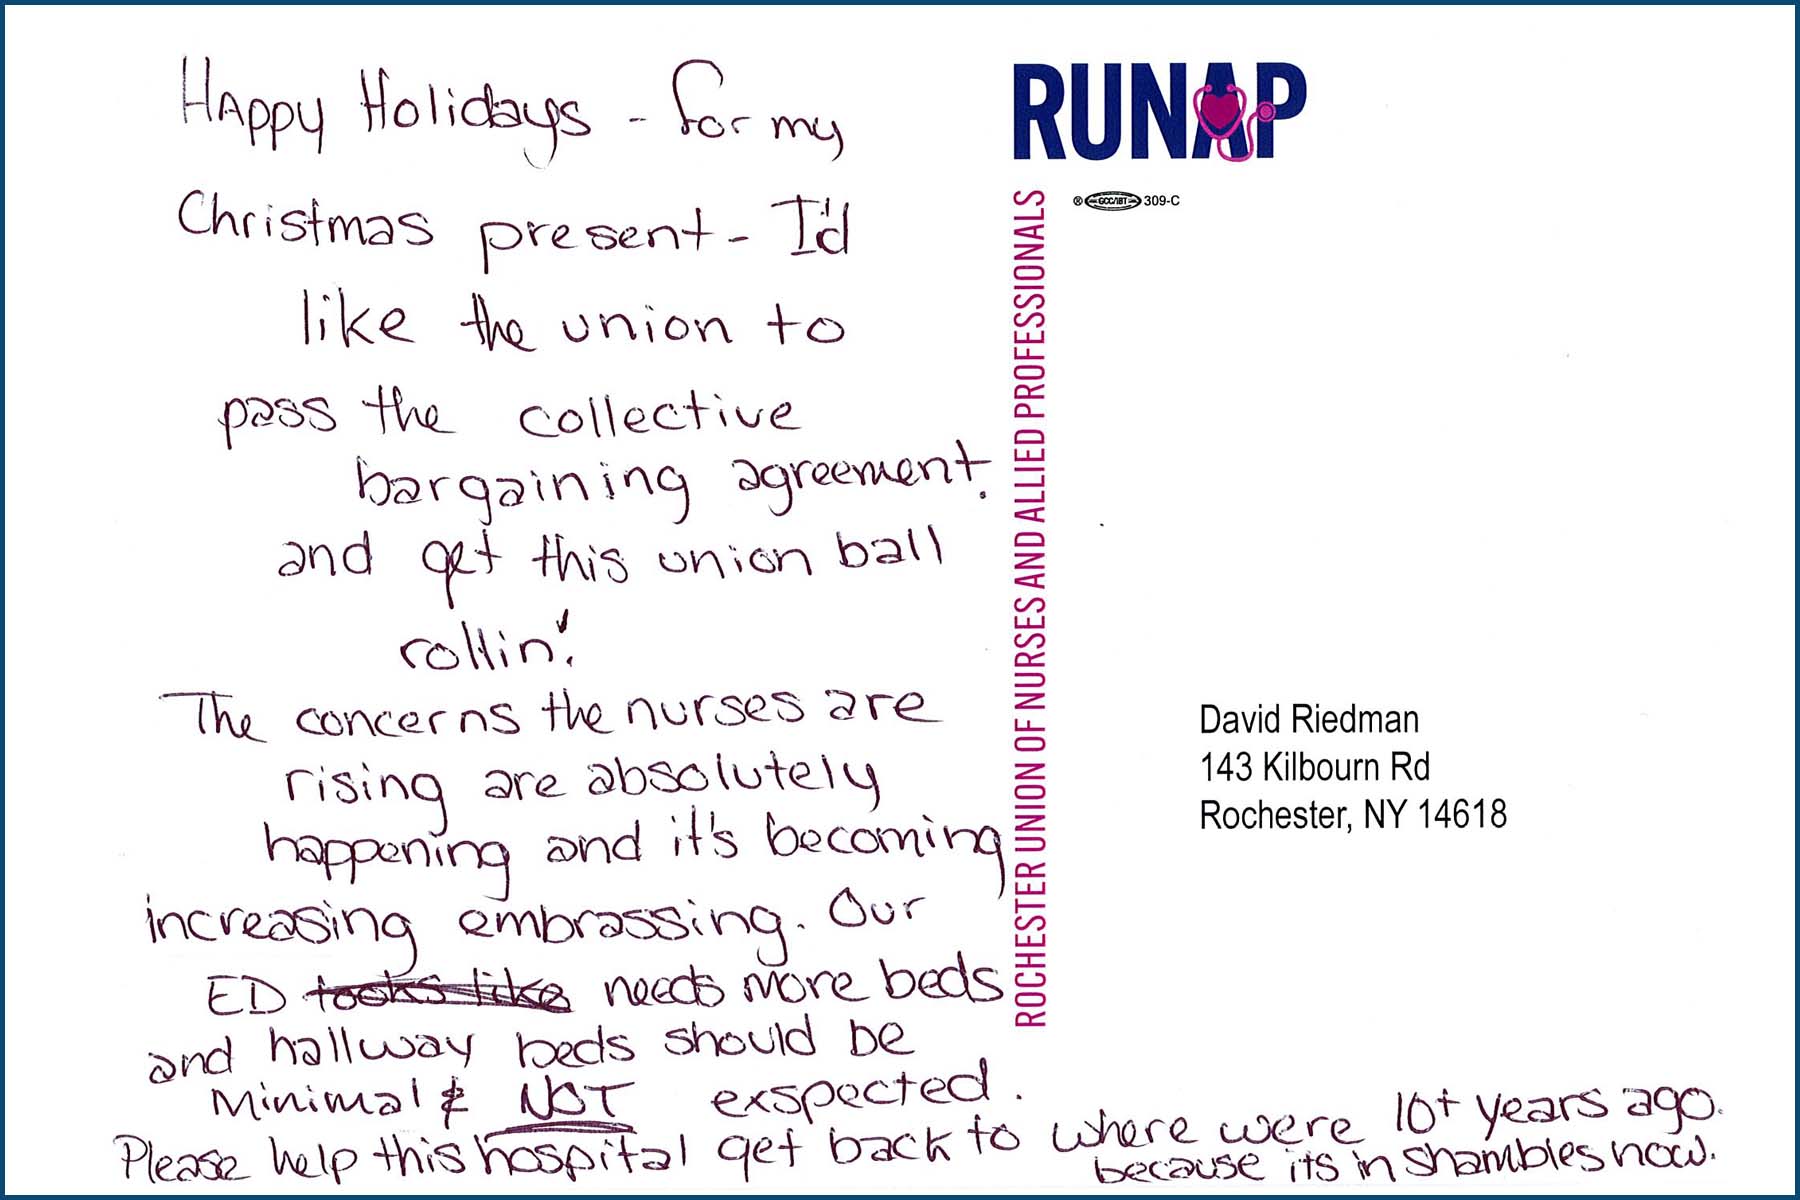 Happy Holidays - for my
Christmas present - I'd
like the union to
pass the collective
bargaining agreement.
and get this union ball
rollin!
The concerns the nurses are
rising are absolutely
happening and it's becoming
increasing embrassing. Our
ED looks like needs more beds
and hallway beds should be
Minimal & NOT exspected.
Please help this hospital get back to where were 10+ years ago.
because its in shambles now.
RUNAP
® GCC/IBT 309-C
ROCHESTER UNION OF NURSES AND ALLIED PROFESSIONALS
David Riedman
143 Kilbourn Rd
Rochester, NY 14618